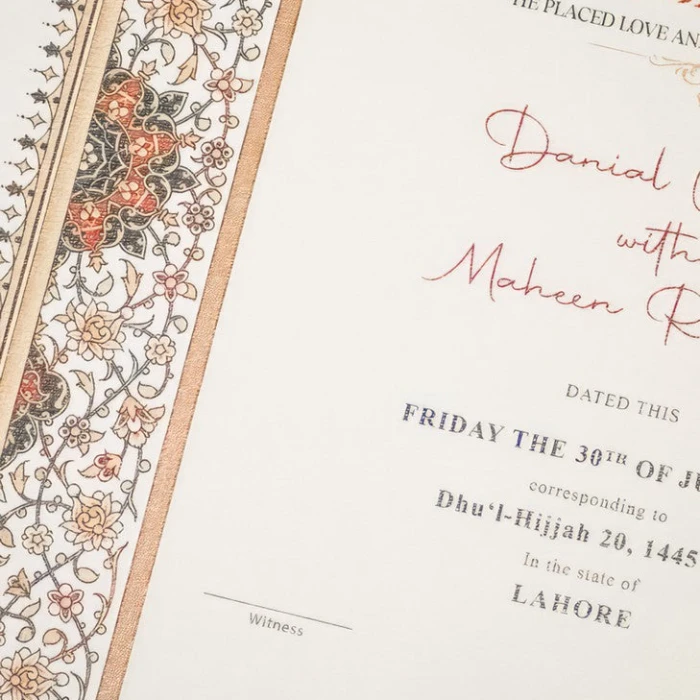 HE PLACED LOVE AN
Danial
with
Maheen R
DATED THIS
FRIDAY THE 30TH OF JU
corresponding to
Dhu‘l-Hijjah 20, 1445
In the state of
LAHORE
Witness